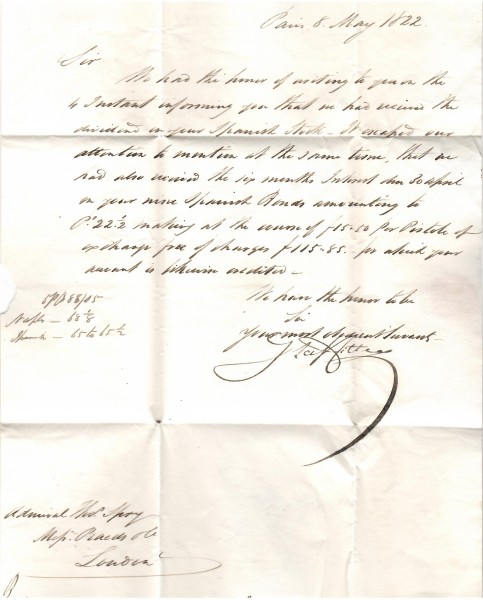 Paris 8. May 1822.
Sir
We had the honor of writing to you on the
4 Instant informing you that we had received the
dividend on your Spanish Stock - It escaped our
attention to mention at the same time, that we
had also received the six months Interest due 30 april
on your nine Spanish Bonds amounting to
P.22.½ making at the course of f15.50 per Pistole of
exchange free of charges f.115.85. for which your
account is likewise credited -
5 P% 88/05
Naples - 68⅛
We have the honor to be
Sir
Your most obedient Servants
Admiral Thos. Spry
Messrs. Praeds & Co
London